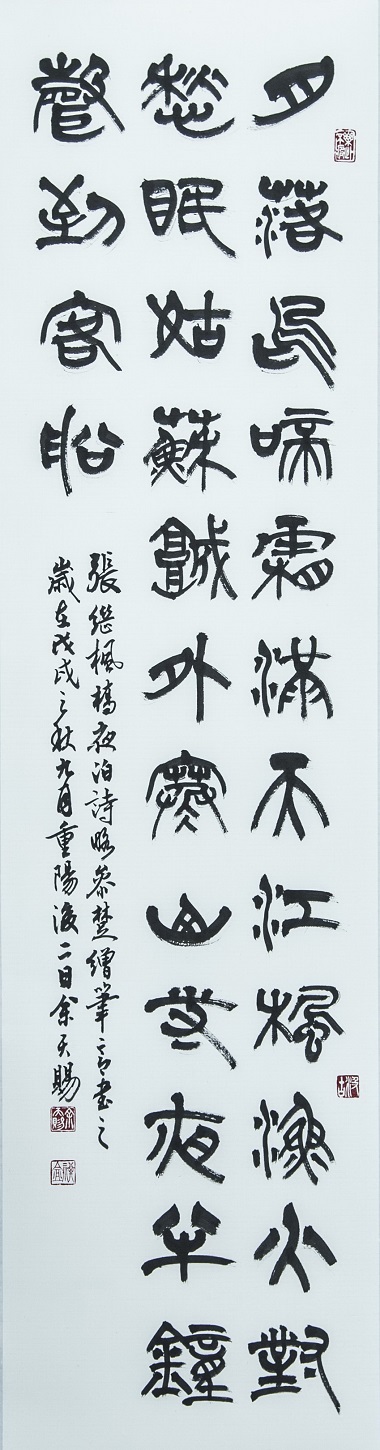 月落烏啼霜滿天江楓漁火對
愁眠姑蘇城外寒山寺夜半鐘
聲到客船
張繼楓橋夜泊詩略參楚繒筆意書之
歲在戊戌之秋九月重陽後二日余天賜